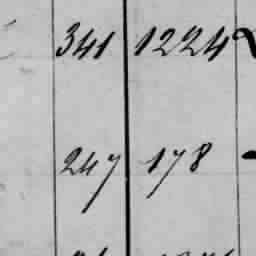 341 1224
247 178